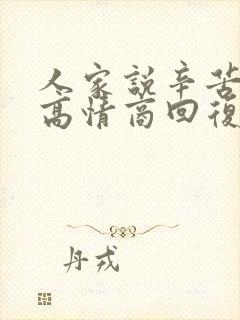 人家說辛苦
高情商回復
丹戎